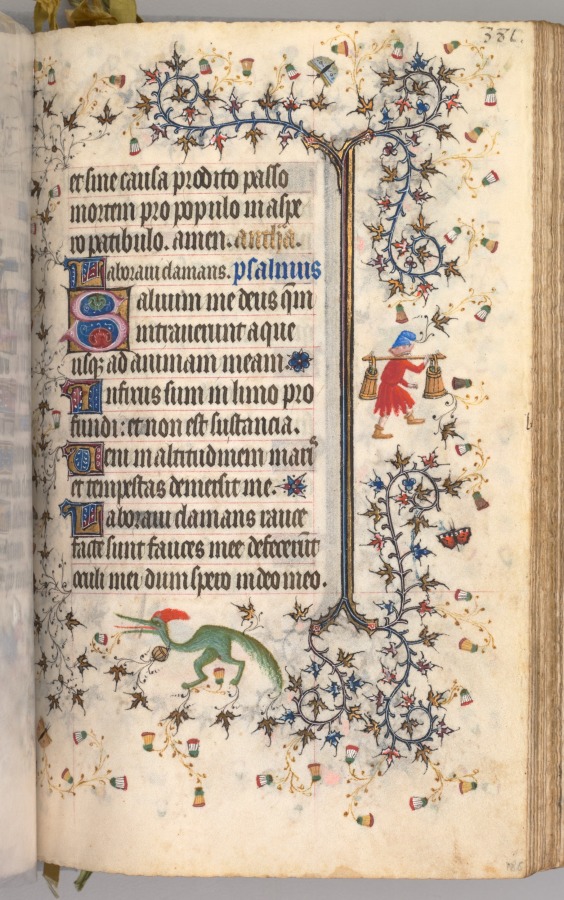 et sine causa prodito passo
mortem pro populo in aspe
ro patibulo. amen. antha.
Laboraui clamans. psalmus
Saluum me deus qm̄
intrauerunt aque
usq; ad animam meam
Infixus sum in limo pro
fundi: et non est sustancia.
Ueni in altitudinem maris
et tempestas demersit me.
Laboraui clamans rauce
facte sunt fauces mee defecerūt
oculi mei dum spero in deo meo.